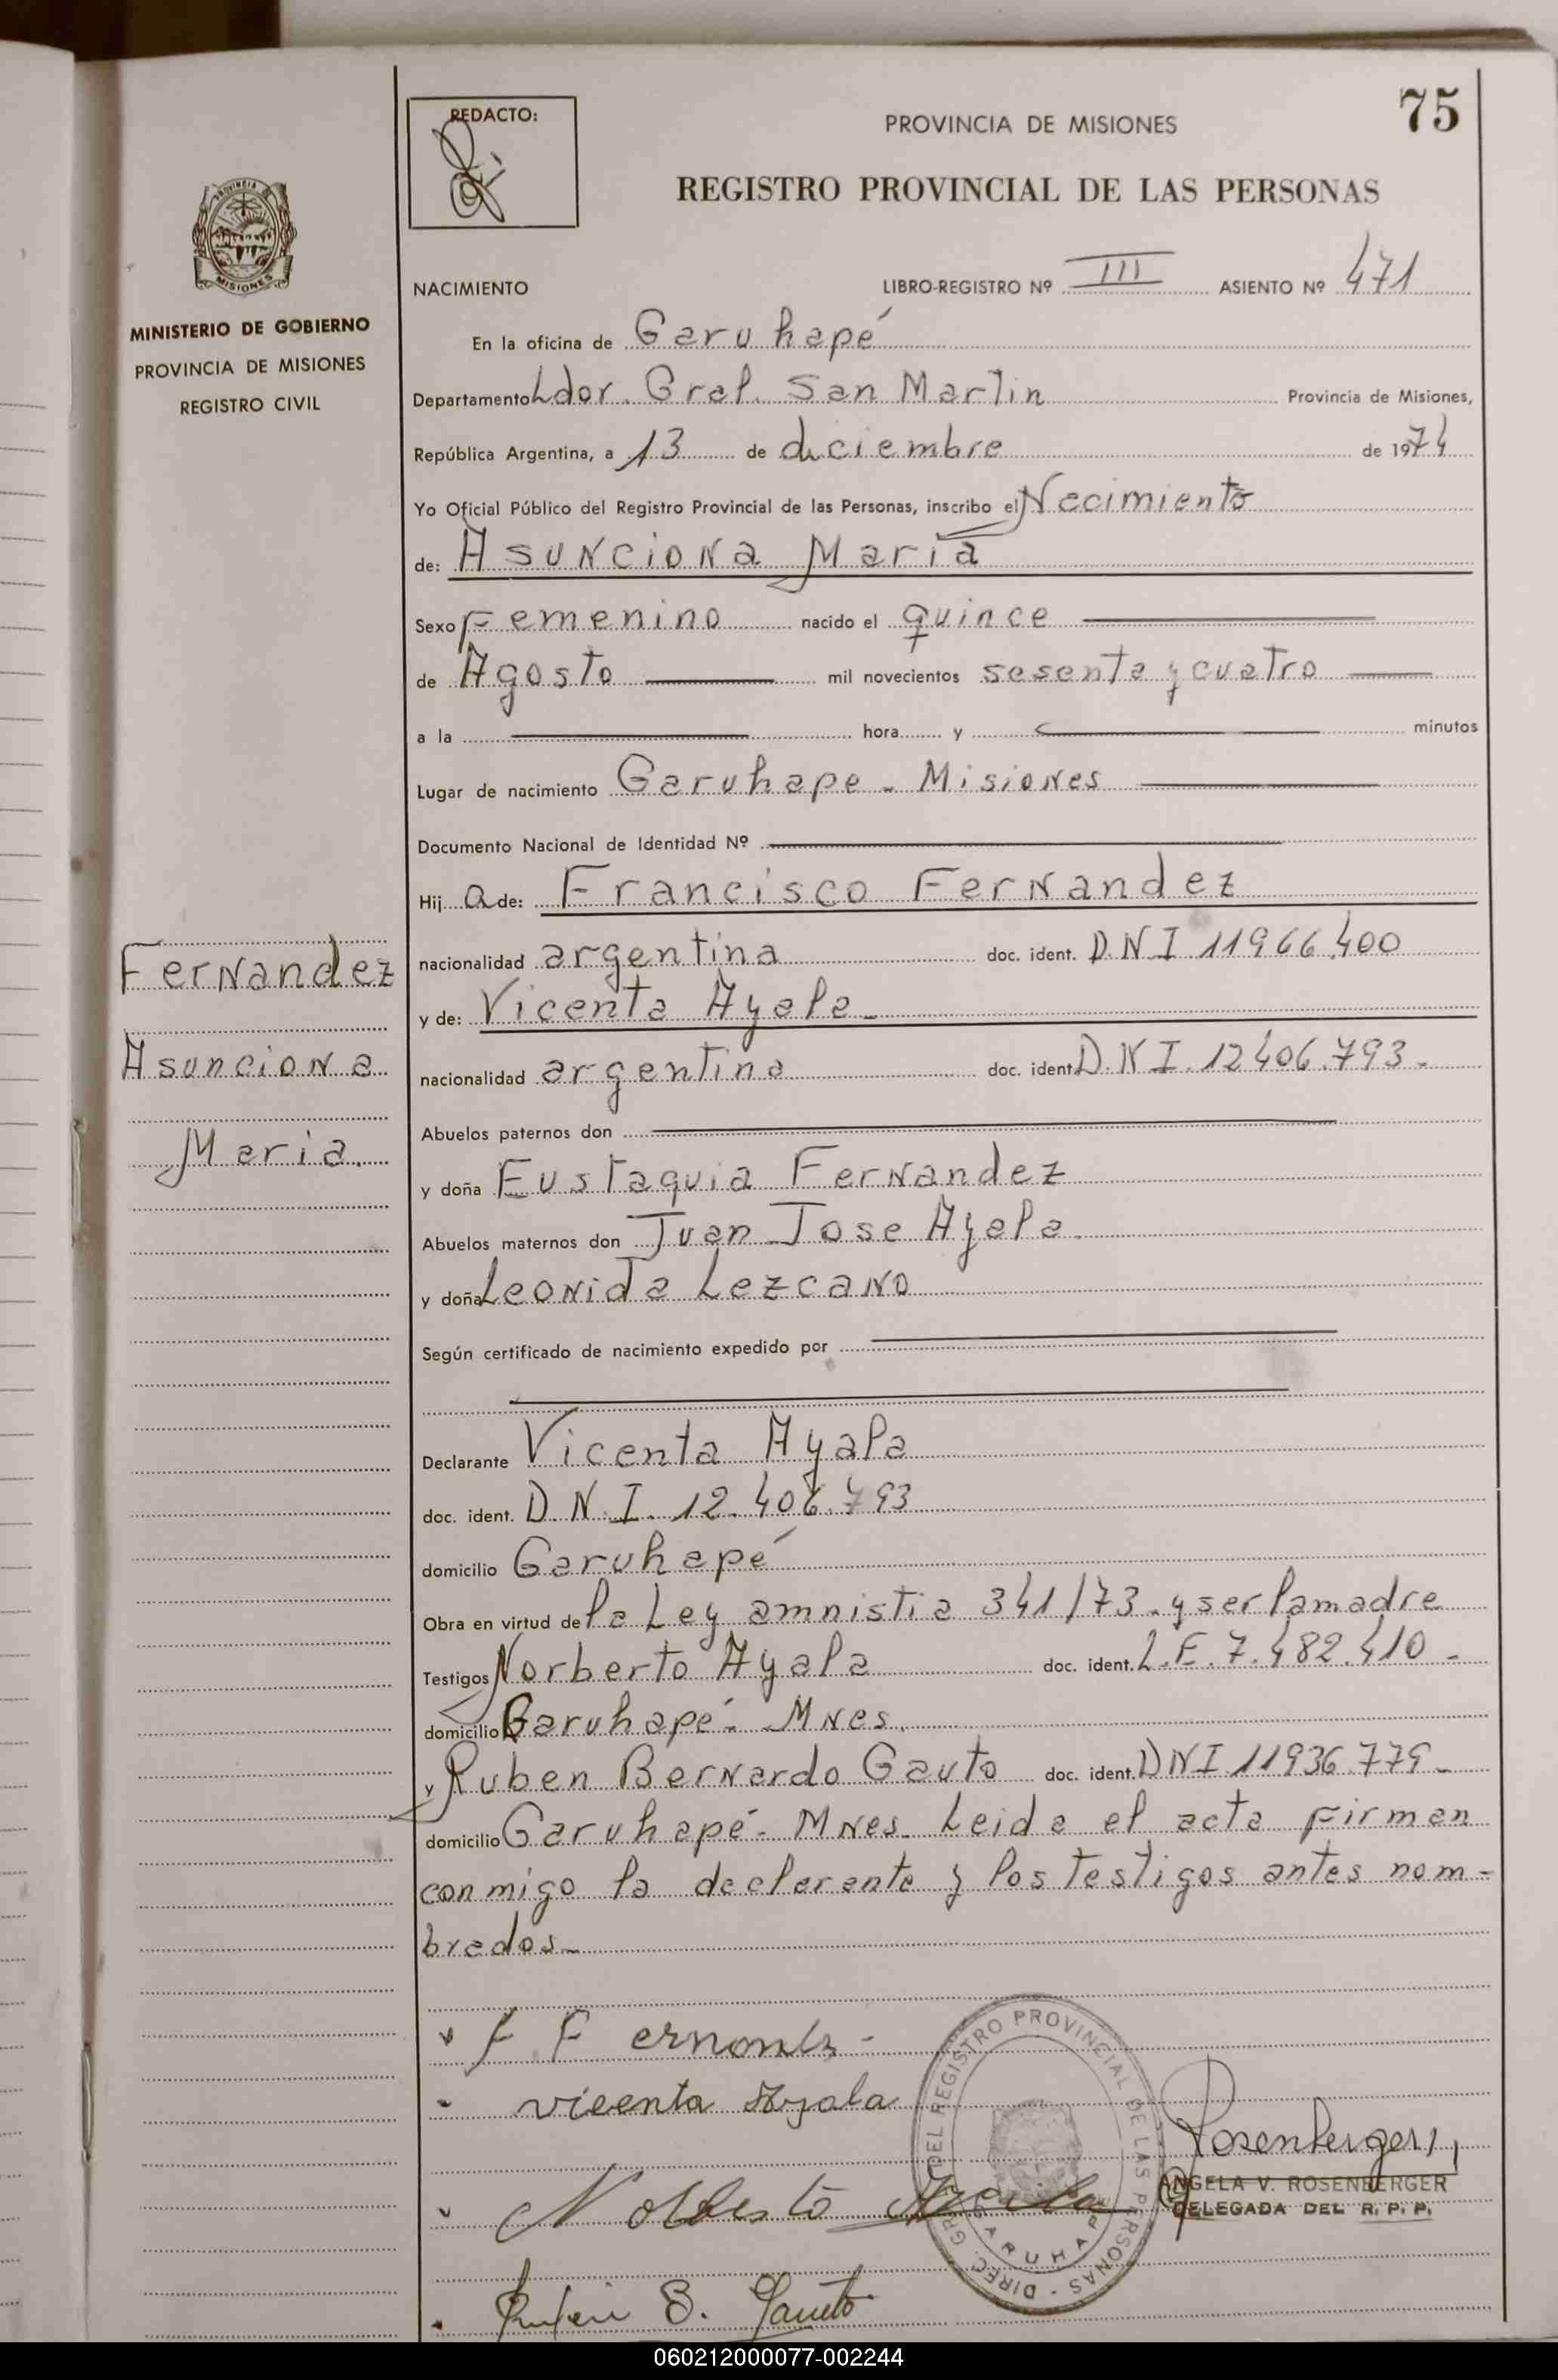 75
REDACTO:
PROVINCIA DE MISIONES
REGISTRO PROVINCIAL DE LAS PERSONAS
PROVINCIA DE
MISIONES
MINISTERIO DE GOBIERNO
PROVINCIA DE MISIONES
REGISTRO CIVIL
NACIMIENTO LIBRO-REGISTRO Nº III ASIENTO Nº 471
En la oficina de Garuhapé
Departamento Ldor. Gral. San Martin Provincia de Misiones,
República Argentina, a 13 de diciembre de 1974
Yo Oficial Público del Registro Provincial de las Personas, inscribo el Nacimiento
de: Asunciona Maria
Sexo Femenino nacido el quince
de Agosto mil novecientos sesenta y cuatro
a la hora y minutos
Lugar de nacimiento Garuhape - Misiones
Documento Nacional de Identidad Nº
Hij a de: Francisco Fernandez
nacionalidad argentina doc. ident. D.N.I 11966.400
y de: Vicenta Ayala -
nacionalidad argentina doc. ident D.N.I. 12406.793.-
Abuelos paternos don
y doña Eustaquia Fernandez
Abuelos maternos don Juan Jose Ayala.
y doña Leonida Lezcano
Según certificado de nacimiento expedido por
Declarante Vicenta Ayala
doc. ident. D.N.I. 12.406.793
domicilio Garuhapé
Obra en virtud de la Ley amnistia 341/73.y ser la madre
Testigos Norberto Ayala doc. ident. L.E. 7.482.410 -
domicilio Garuhapé - Mnes.
y Ruben Bernardo Gauto doc. ident. DNI 11936.779 -
domicilio Garuhapé - Mnes. Leida el acta firman
conmigo la declarante y los testigos antes nom=
brados-
Fernandez
Asunciona
Maria.
vicenta Ayala
Norberto Ayala
Ruben B. Gauto
DIREC. GRAL. DEL REGISTRO PROVINCIAL DE LAS PERSONAS -
GARUHAPE
Rosenberger
ANGELA V. ROSENBERGER
DELEGADA DEL R. P. P.
060212000077-002244